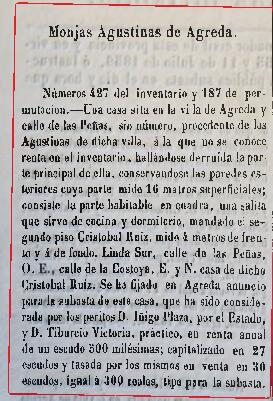 Monjas Agustinas de Agreda.
Números 427 del inventario y 187 de per-
mutacion.—Una casa sita en la villa de Agreda y
calle de las Peñas, sin número, procedente de las
Agustinas de dicha villa, á la que no se conoce
renta en el inventario, hallándose derruida la par-
te principal de ella, conservandose las paredes es-
teriores cuya parte mide 16 metros superficiales;
consiste la parte habitable en cuadra, una salita
que sirve de cocina y dormitorio, mandado el se-
gundo piso Cristobal Ruiz, mide 4 metros de fren-
te y 4 de fondo. Linda Sur, calle de las Peñas,
O. E., calle de la Costoya, E. y N. casa de dicho
Cristobal Ruiz. Se ha fijado en Agreda anuncio
para la subasta de este casa, que ha sido conside-
rada por los peritos D. Iñigo Plaza, por el Estado,
y D. Tiburcio Victoria, práctico, en renta anual
de un escudo 500 milésimas; capitalizado en 27
escudos y tasada por los mismos en venta en 30
escudos, igual á 300 reales, tipo para la subasta.